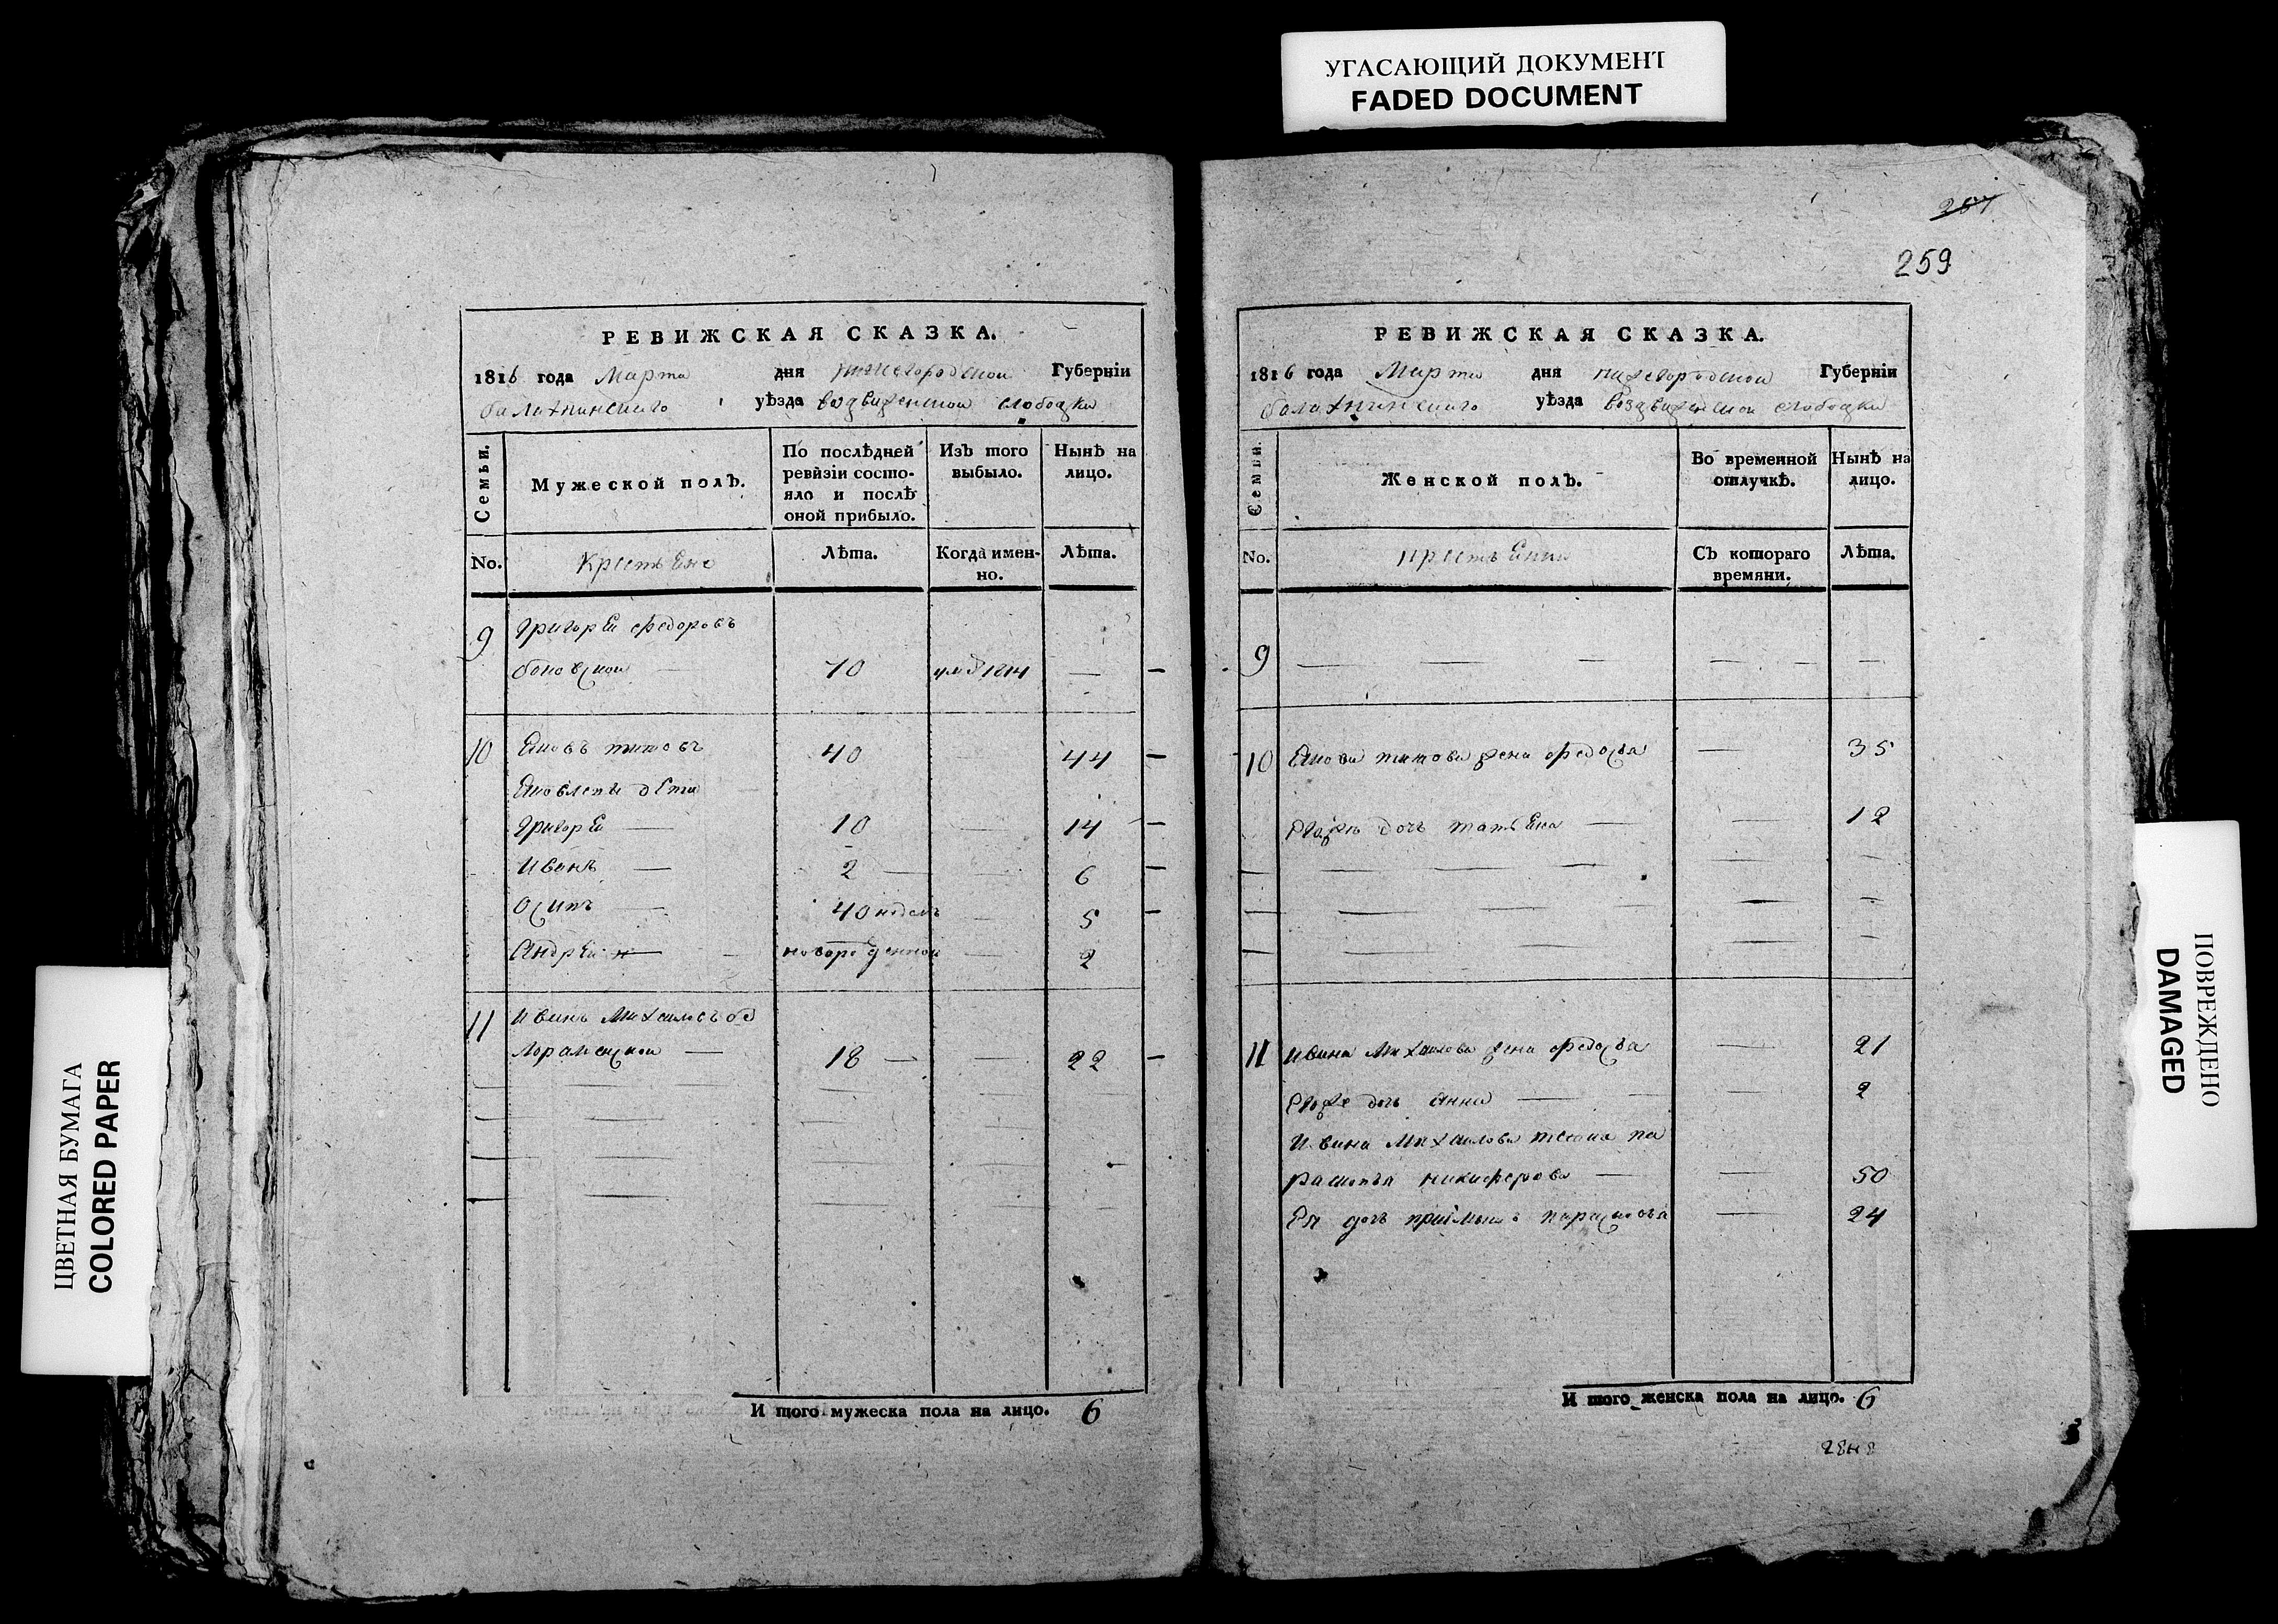 УГАСАЮЩИЙ ДОКУМЕНТ
FADED DOCUMENT
259
РЕВИЖСКАЯ СКАЗКА.
1816 года Марта дня нижегородской Губерніи
балахнинского уѣзда воздвиженской слободки
Семьи.
Мужеской полъ.
По послѣдней
ревизіи состо-
яло и послѣ
оной прибыло.
Изъ того
выбыло.
Нынѣ на
лицо.
No.
Крестьяне
Лѣта.
Когда имен-
но.
Лѣта.
9 григореи федоровъ
70 1814 —
10 Яковъ титовъ 40 44
Яковлевы дети
григореи — 10 14
Иванъ — 2 6
Осипъ — 40 недель 5
Андреи новорожденной 2
11 Иванъ Михаиловъ
18 22
И того мужеска пола на лицо. 6
РЕВИЖСКАЯ СКАЗКА.
1816 года Марта дня нижегородской Губерніи
балахнинского уѣзда воздвиженской слободки
Семьи.
Женской полъ.
Во временной
отлучкѣ.
Нынѣ на
лицо.
No.
крестьянки
Съ котораго
времяни.
Лѣта.
9 — — — — — —
10 Якова титова жена федосья — 35
дочь татьяна — 12
11 Ивана Михаилова жена федосья — 21
дочь Анна — 2
Ивана Михаилова па
никифорова — 50
Ея дочь 24
И того женска пола на лицо. 6
ЦВЕТНАЯ БУМАГА
COLORED PAPER
ПОВРЕЖДЕНО
DAMAGED